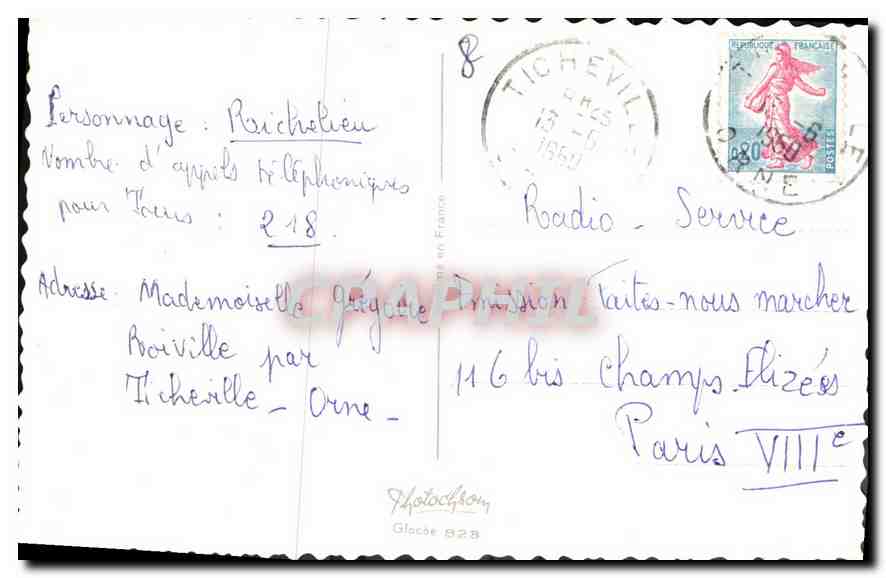 8
TICHEVIL
13 -6
1960
REPUBLIQUE FRANÇAISE
0,20
POSTES
ORNE
Personnage : Richelieu
Nombre d'appels téléphoniques
pour
218
Adresse. Mademoiselle Grégoire
Roiville par
Ticheville - Orne -
Radio - Service
Emission Faites-nous marcher
116 bis Champs Elizées
Paris VIIIe
en France
CPAPHIL
Photochrom
Glacée 828